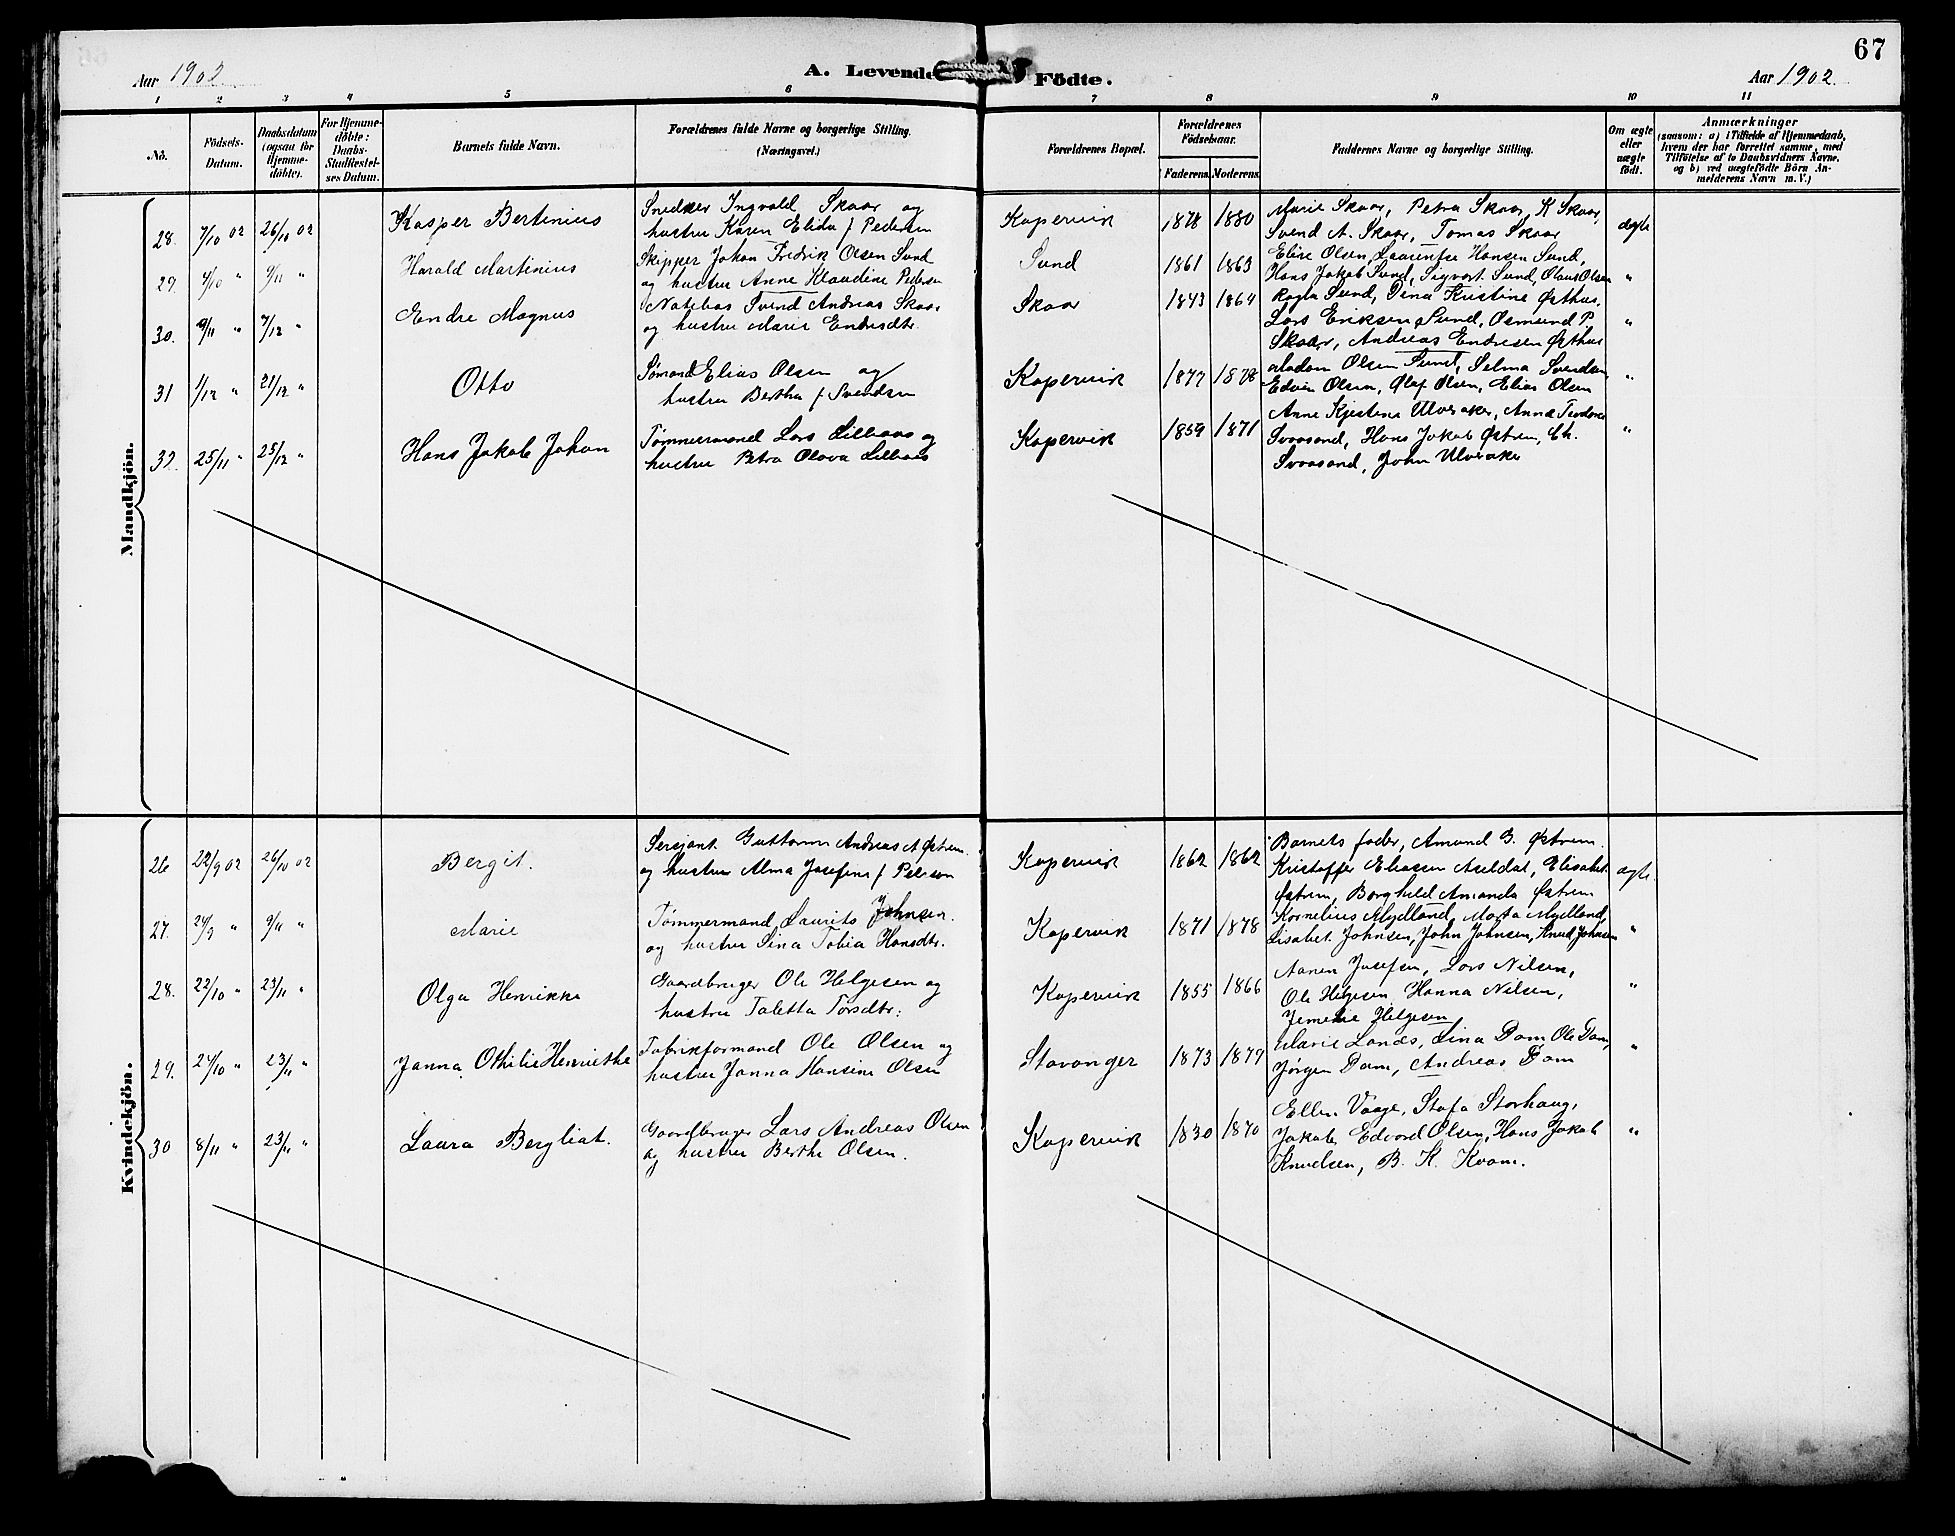 67
Aar 1902
A. Levende Födte.
Aar 1902
1 2 3 4 5 6 7 8 9 10 11
No.
Födsels-
Datum.
Daabsdatum
(ogsaa for
Hjemme-
döbte).
For Hjemme-
döbte:
Daabs-
Stadfæstel-
ses Datum.
Barnets fulde Navn.
Forældrenes fulde Navne og borgerlige Stilling.
(Næringsvei.)
Forældrenes Bopæl.
Forældrenes
Födselsaar.
Faderens. Moderens.
Faddernes Navne og borgerlige Stilling.
Om ægte
eller
uægte
födt.
Anmærkninger
(saasom: a) i Tilfælde af Hjemmedaab,
hvem der har forrettet samme, med
Tilföielse af to Daabsvidners Navne,
og b) ved uægtefödte Börn An-
melderens Navn m. V.)
Mandkjön.
28. 7/10 02 26/10 02 Kasper Bertinius
Snedker Ingvald Skaar og
hustru Karen Elida f Pedersen
Kopervik 1878 1880
Marie Skaar, Petra Skaar, K Skaar,
Svend A. Skaar, Tomas Skaar
ægte
29. 4/10 " 9/11 " Harald Martinius
Skipper Johan Fredrik Olsen Sund
og hustru Anne Klaudine Pedersen
Sund 1861 1863
Elise Olsen, Laurentse Hansen Sund,
Hans Jakob Sund, Sigvart Sund, Olaus Olsen "
30. 9/11 " 7/12 " Endre Magnus
Notebas Svend Andreas Skaar
og hustru Marie Endresdtr.
Skaar 1843 1864
Ragla Sund, Dina Kristine Østhus,
Lars Eriksen Sund, Osmund P.
Skaar, Andreas Endresen Østhus "
31 1/12 " 21/12 " Otto
Sømand Elias Olsen og
hustru Bertha f. Svendsen
Kopervik 1877 1878
Madam Olsen Sund, Selma Svendsen,
Edvin Olsen, Olaf Olsen, Elias Olsen "
32. 25/11 " 25/12 " Hans Jakob Johan
Tømmermand Lars Lillaas og
hustru Petra Olava Lillaas
Kopervik 1859 1871
Anne Kjestina Ulveraker, Anna Teodora
Svaasand, Hans Jakob Østrem, Ch.
Svaasand, John Ulveraker "
Kvindekjön.
26 22/9 02 26/10 02 Bergit.
Sersjant Guttorm Andreas A Østrem
og hustru Alma Josefine f Peterson
Kopervik 1862 1862
Barnets fader, Amund G. Østrem
Kristoffer Eliassen Aseldal, Elisabet
Østrem, Borghild Amanda Østrem
ægte
27. 24/9 " 9/11 " Marie
Tømmermand Laurits Johnsen.
og hustru Sina Tobia Hansdtr.
Kopervik 1871 1878
Kornelius Mydland, Marta Mydland,
Lisabet Johnsen, John Johnsen, Knud Johnsen "
28. 22/10 " 23/11 " Olga Henrikka
Gaardbruger Ole Helgesen og
hustru Taletta Torsdtr:
Kopervik 1855 1866
Aanen Josefsen, Lars Nilsen,
Ole Helgesen Hanna Nilsen,
Jemelie Helgesen "
29. 24/10 " 23/11 " Janna Othilie Henriette
Fabrikformand Ole Olsen og
hustru Janna Hansine Olsen
Stavanger 1873 1879
Marie Lands, Lina Dam Ole Dam,
Jørgen Dam, Andreas Dam "
30 8/11 " 23/11 " Laura Bergliat.
Gaardbruger Lars Andreas Olsen
og hustru Berthe Olsen.
Kopervik 1830 1870
Ellen Vaage, Stefa Storhaug,
Jakob Edvard Olsen, Hans Jakob
Knudsen, B. K. Kvam. "